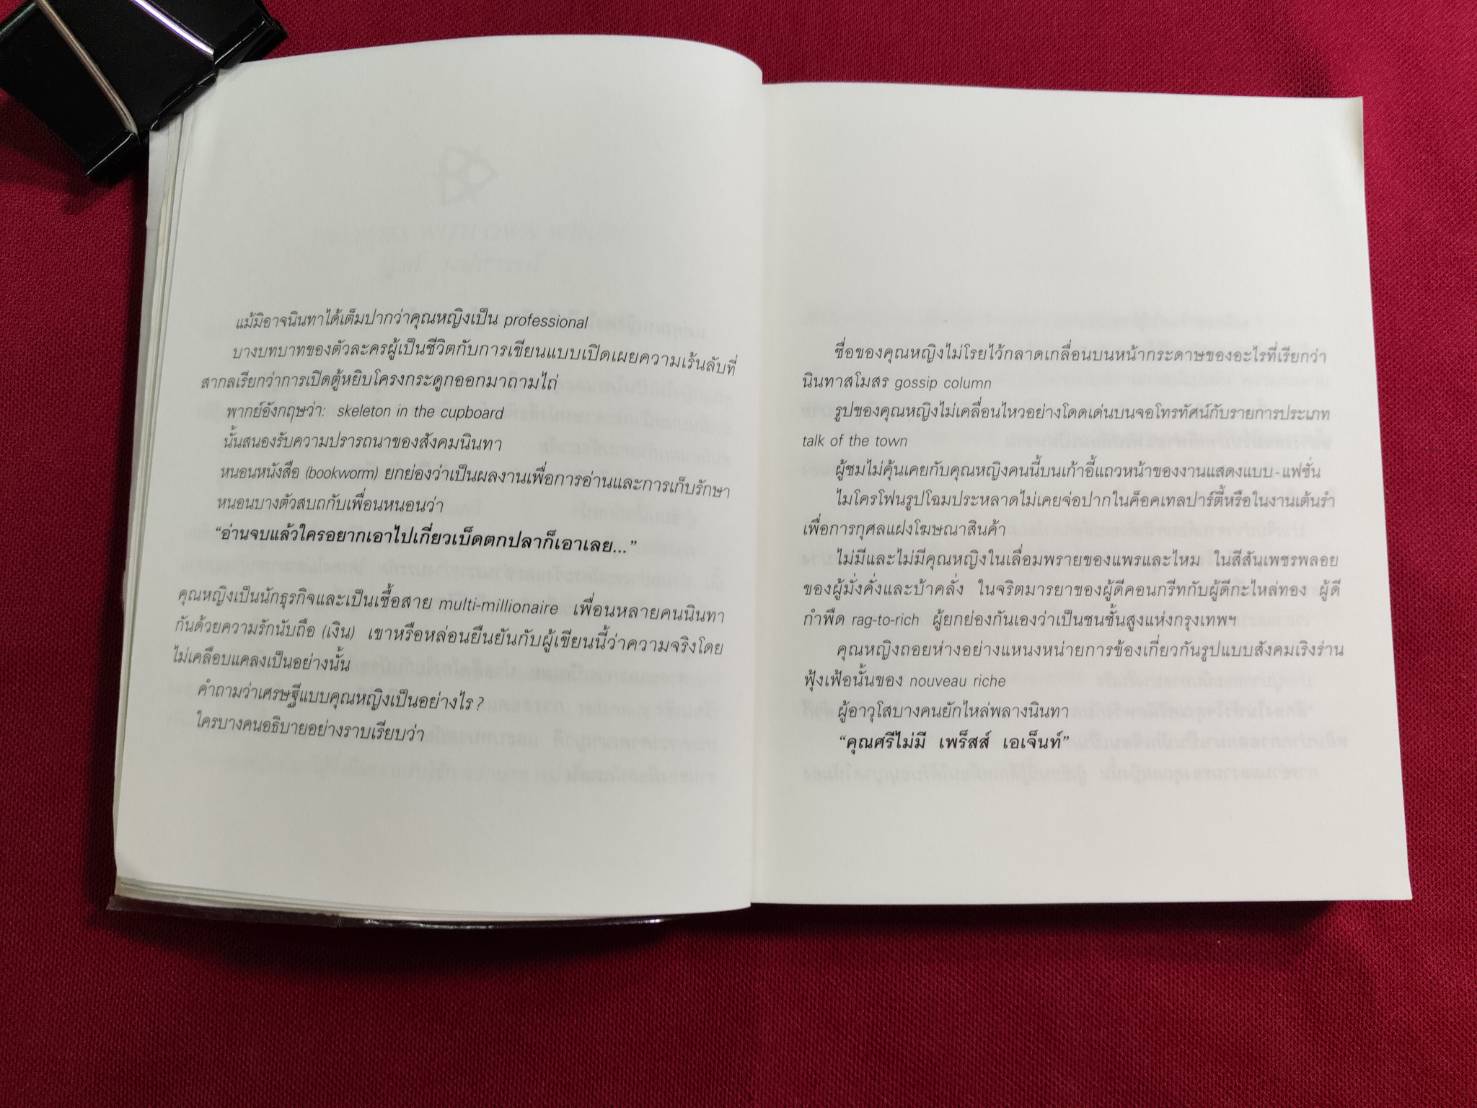 แม้มิอาจนินทาได้เต็มปากว่าคุณหญิงเป็น professional
บางบทบาทของตัวละครผู้เป็นชีวิตกับการเขียนแบบเปิดเผยความเร้นลับที่
สากลเรียกว่าการเปิดตู้หยิบโครงกระดูกออกมาถามไถ่
พากย์อังกฤษว่า: skeleton in the cupboard
นั้นสนองรับความปรารถนาของสังคมนินทา
หนอนหนังสือ (bookworm) ยกย่องว่าเป็นผลงานเพื่อการอ่านและการเก็บรักษา
หนอนบางตัวสบถกับเพื่อนหนอนว่า
“อ่านจบแล้วใครอยากเอาไปเกี่ยวเบ็ดตกปลาก็เอาเลย...”
คุณหญิงเป็นนักธุรกิจและเป็นเชื้อสาย multi-millionaire เพื่อนหลายคนนินทา
กันด้วยความรักนับถือ (เงิน) เขาหรือหล่อนยืนยันกับผู้เขียนนี้ว่าความจริงโดย
ไม่เคลือบแคลงเป็นอย่างนั้น
คำถามว่าเศรษฐีแบบคุณหญิงเป็นอย่างไร?
ใครบางคนอธิบายอย่างราบเรียบว่า
ชื่อของคุณหญิงไม่โรยไว้กลาดเกลื่อนบนหน้ากระดาษของอะไรที่เรียกว่า
นินทาสโมสร gossip column
รูปของคุณหญิงไม่เคลื่อนไหวอย่างโดดเด่นบนจอโทรทัศน์กับรายการประเภท
talk of the town
ผู้ชมไม่คุ้นเคยกับคุณหญิงคนนี้บนเก้าอี้แถวหน้าของงานแสดงแบบ-แฟชั่น
ไมโครโฟนรูปโฉมประหลาดไม่เคยจ่อปากในค็อคเทลปาร์ตี้หรือในงานเต้นรำ
เพื่อการกุศลแฝงโฆษณาสินค้า
ไม่มีและไม่มีคุณหญิงในเลื่อมพรายของแพรและไหม ในสีสันเพชรพลอย
ของผู้มั่งคั่งและบ้าคลั่ง ในจริตมารยาของผู้ดีคอนกรีทกับผู้ดีกะไหล่ทอง ผู้ดี
กำพืด rag-to-rich ผู้ยกย่องกันเองว่าเป็นชนชั้นสูงแห่งกรุงเทพฯ
คุณหญิงถอยห่างอย่างแหนงหน่ายการข้องเกี่ยวกับรูปแบบสังคมเริงร่าน
ฟุ้งเฟ้อนั้นของ nouveau riche
ผู้อาวุโสบางคนยักไหล่พลางนินทา
“คุณศรีไม่มี เพร็สส์ เอเจ็นท์”